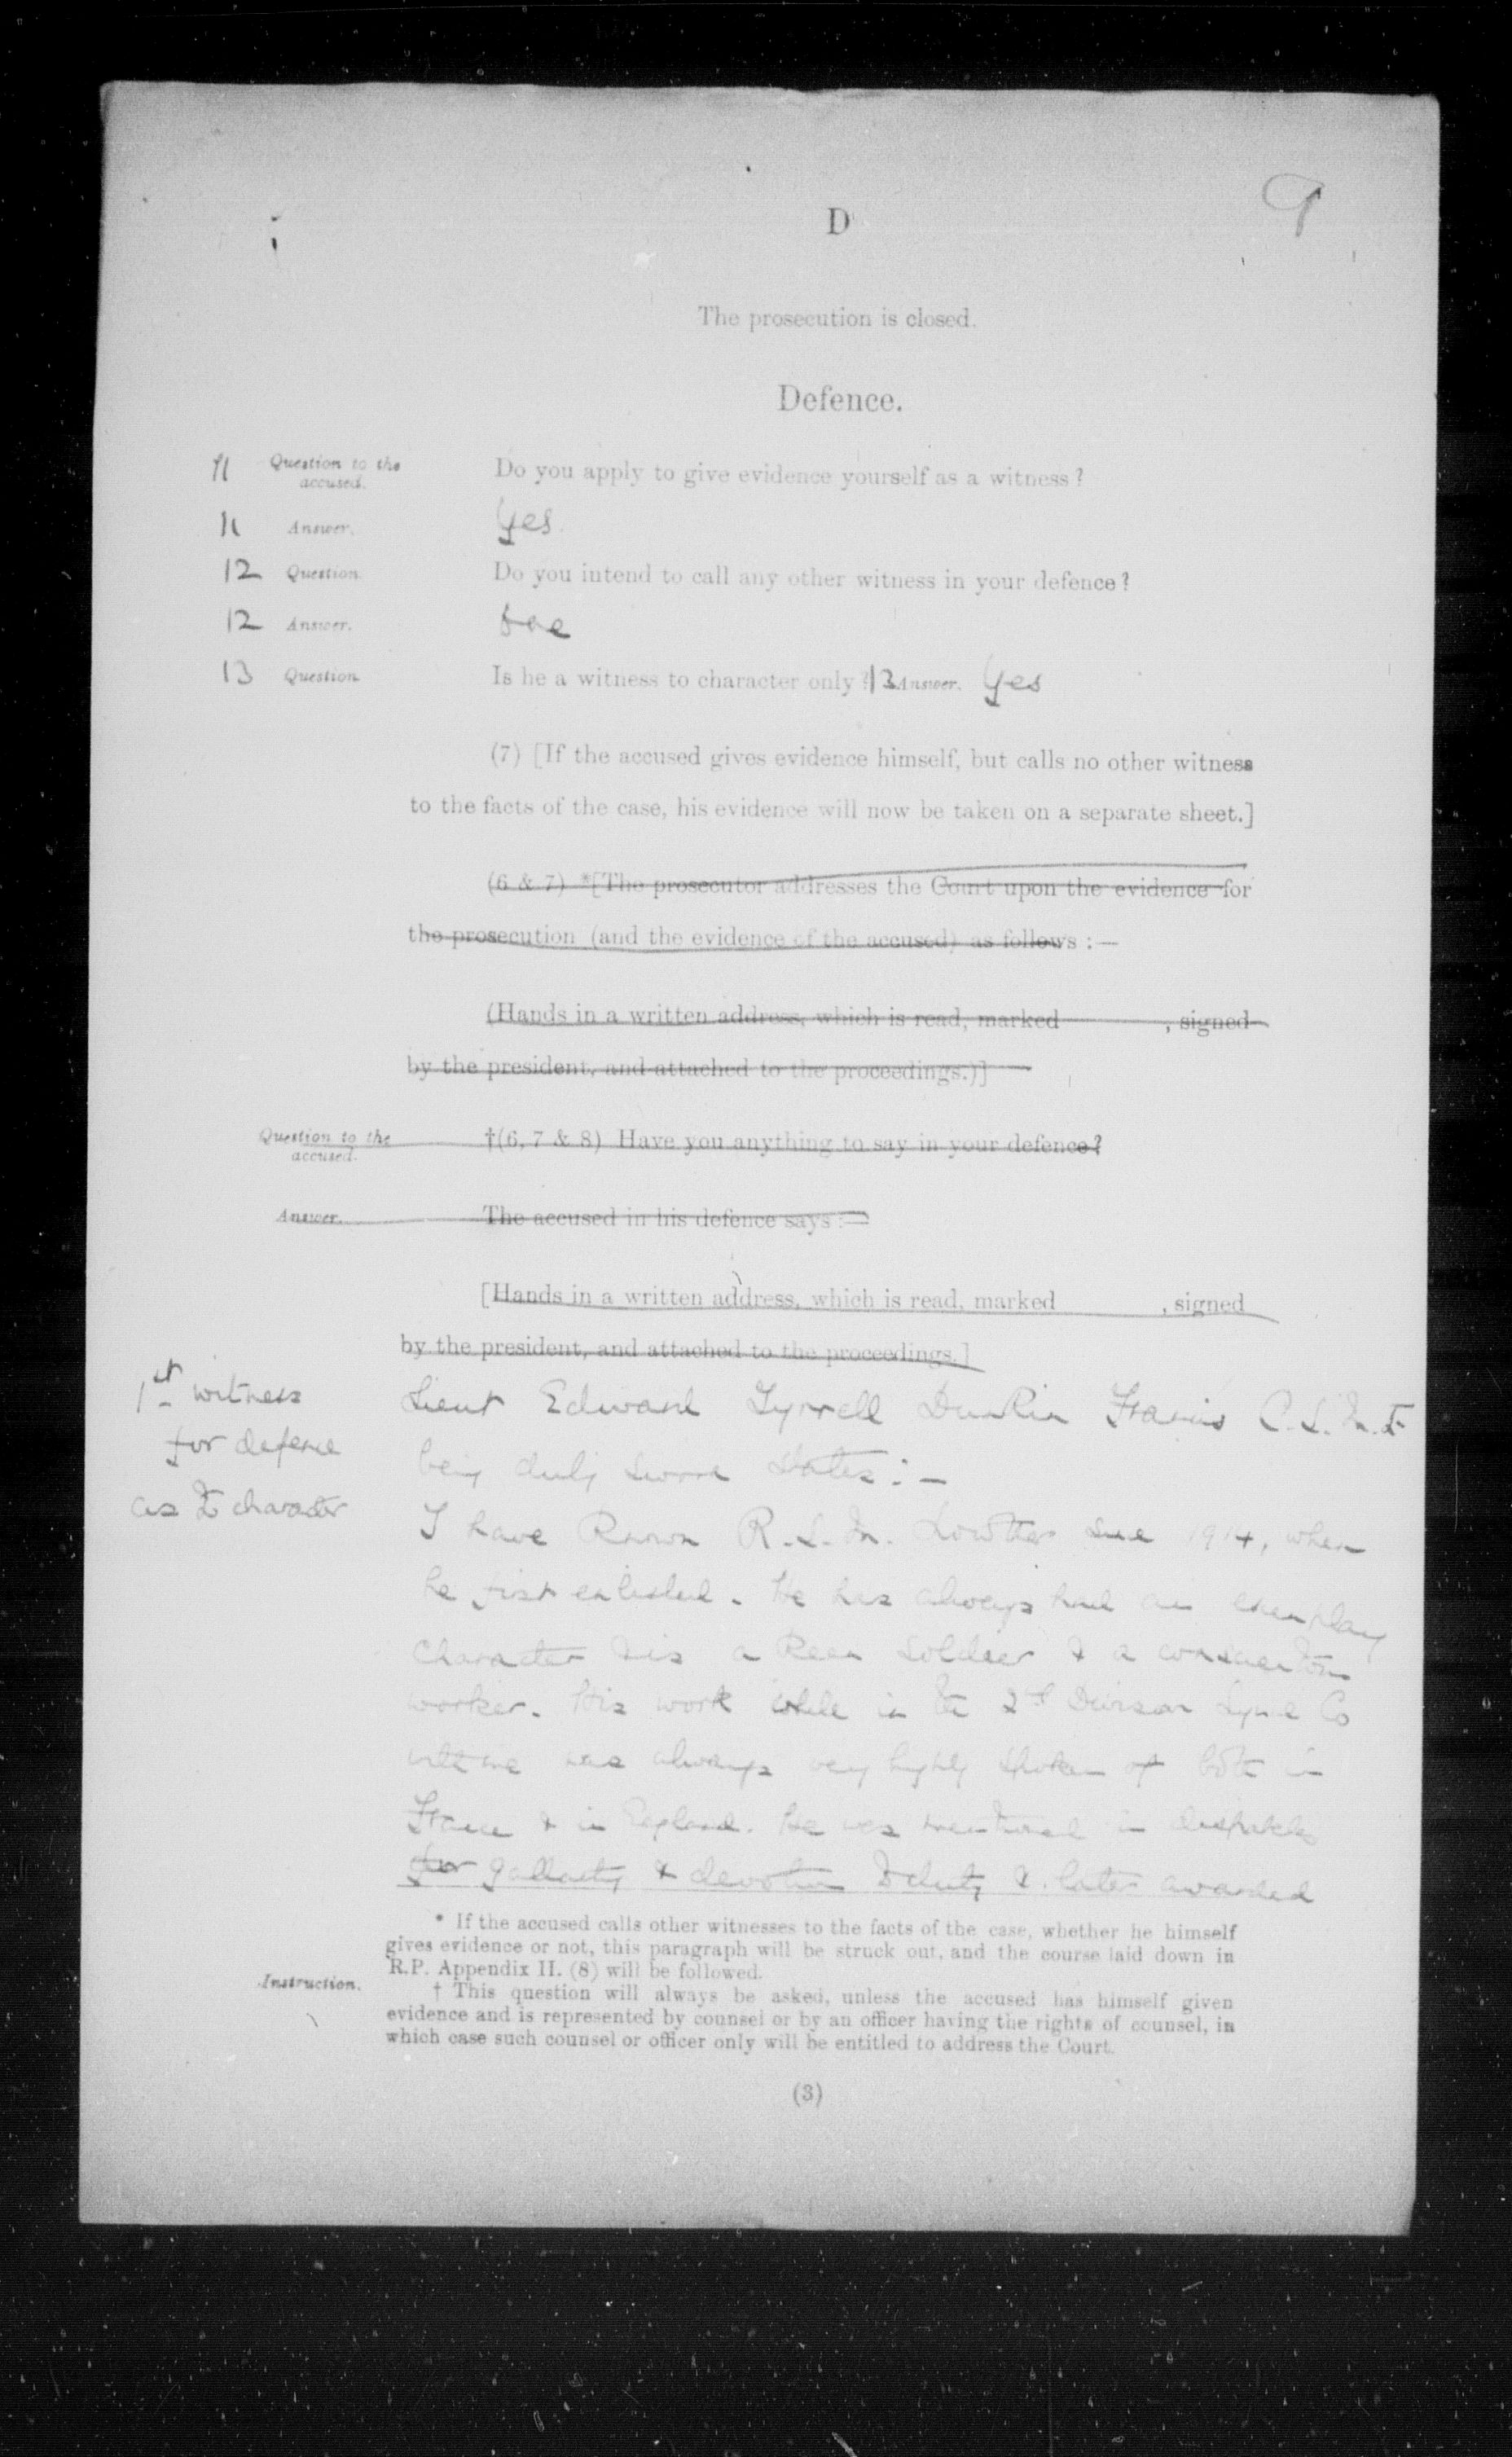 D
9
The prosecution is closed.
Defence.
11 Question to the accused. Do you apply to give evidence yourself as a witness?
11 Answer. Yes
12 Question. Do you intend to call any other witness in your defence?
12 Answer.
13 Question. Is he a witness to character only? 13 Answer. Yes
(7) [If the accused gives evidence himself, but calls no other witness
to the facts of the case, his evidence will now be taken on a separate sheet.]
(6 & 7) *[The prosecutor addresses the Court upon the evidence for
the prosecution (and the evidence of the accused) as follows :—
(Hands in a written address, which is read, marked , signed
by the president, and attached to the proceedings.)]
Question to the accused. †(6, 7 & 8) Have you anything to say in your defence?
Answer. The accused in his defence says :—
[Hands in a written address, which is read, marked , signed
by the president, and attached to the proceedings.]
1st witness
for defence
as to character
Lieut Edward Tyrrell Dunkin Francis
being duly sworn states :—
I have known R.S.M. Lowther since 1914, when
he first enlisted. He has always had an exemplary
character & is a keen soldier & a conscientious
worker. His work while in the 2nd Division Co
with me was always very highly spoken of both in
France & in England. He was mentioned in dispatches
for gallantry & devotion to duty & later awarded
* If the accused calls other witnesses to the facts of the case, whether he himself
gives evidence or not, this paragraph will be struck out, and the course laid down in
R.P. Appendix II. (8) will be followed.
Instruction.
† This question will always be asked, unless the accused has himself given
evidence and is represented by counsel or by an officer having the rights of counsel, in
which case such counsel or officer only will be entitled to address the Court.
(3)